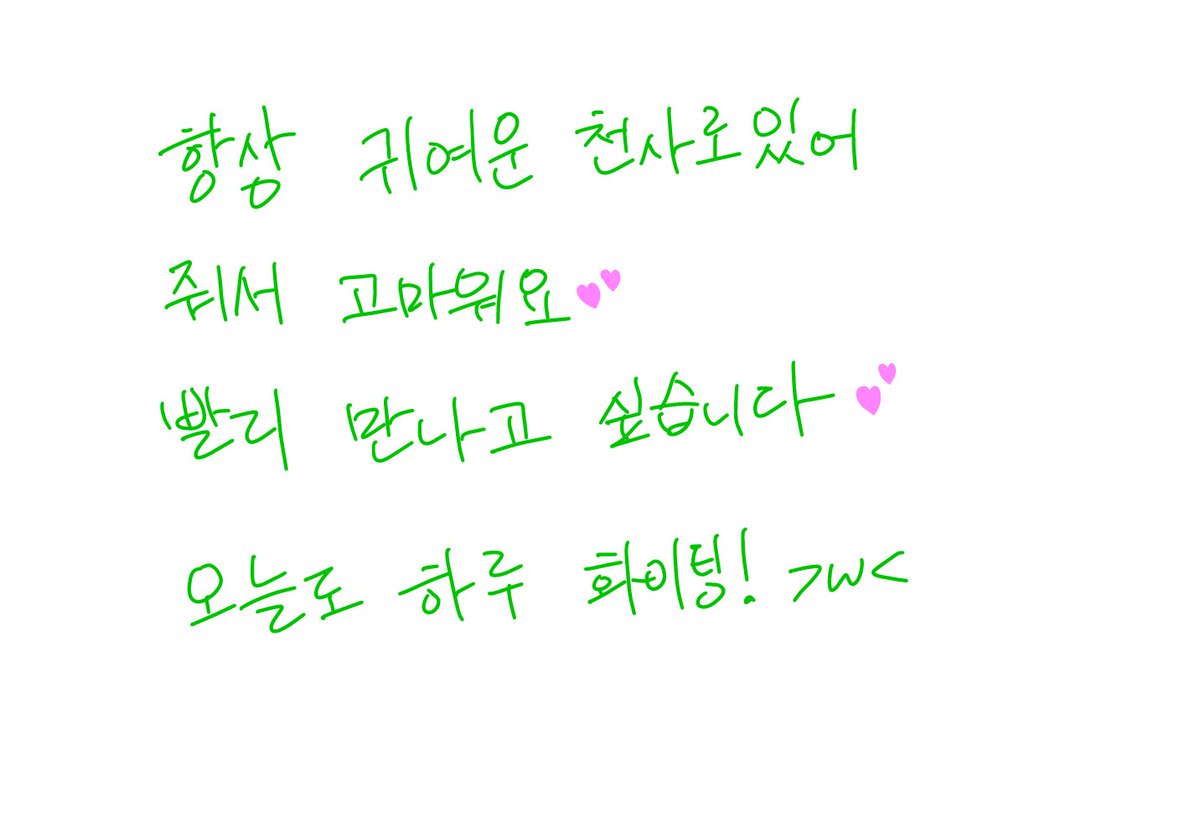 항상 귀여운 천사로있어
줘서 고마워요💕
빨리 만나고 싶습니다💕
오늘도 하루 화이팅! >w<